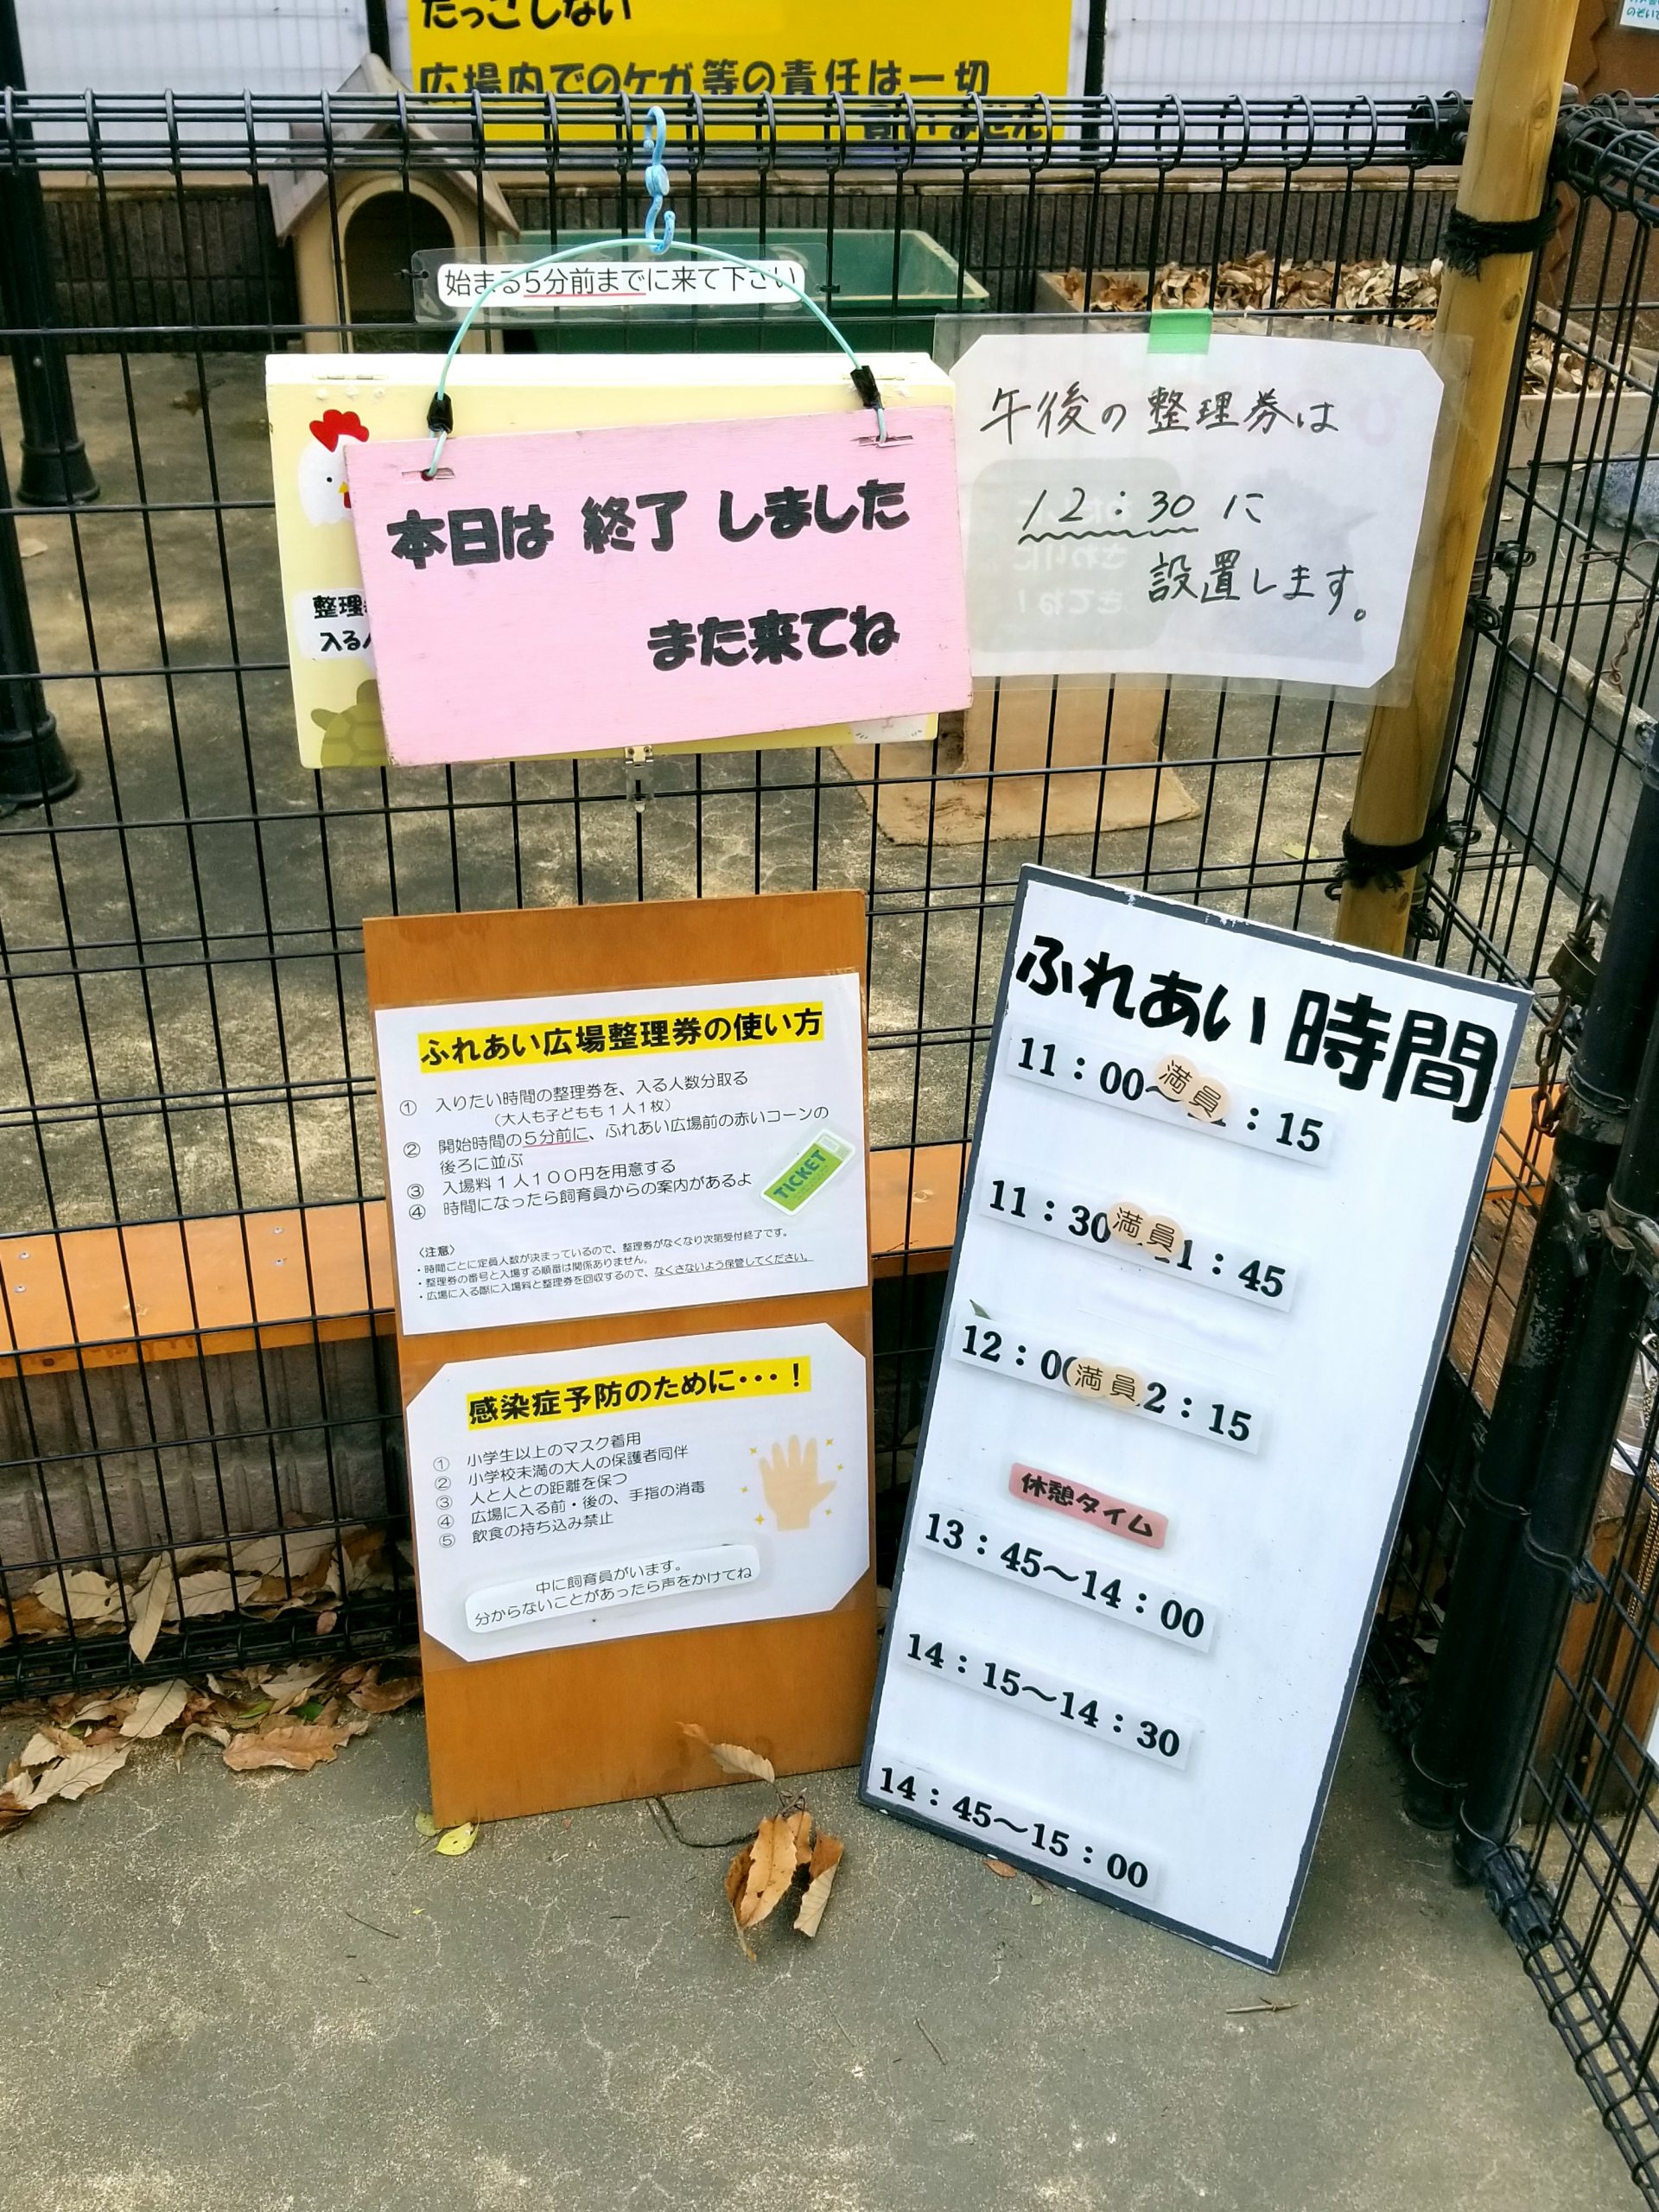 だっこしない
広場内でのケガ等の責任は一切
負いません
始まる5分前までに来て下さい
整理
入る
本日は 終了 しました
また来てね
午後の整理券は
12:30 に
設置します。
ふれあい広場整理券の使い方
① 入りたい時間の整理券を、入る人数分取る
(大人も子どもも1人1枚)
② 開始時間の5分前に、ふれあい広場前の赤いコーンの
後ろに並ぶ
③ 入場料1人100円を用意する
④ 時間になったら飼育員からの案内があるよ
TICKET
〈注意〉
・時間ごとに定員人数が決まっているので、整理券がなくなり次第受付終了です。
・整理券の番号と入場する順番は関係ありません。
・広場に入る際に入場料と整理券を回収するので、なくさないよう保管してください。
感染症予防のために・・・!
① 小学生以上のマスク着用
② 小学校未満の大人の保護者同伴
③ 人と人との距離を保つ
④ 広場に入る前・後の、手指の消毒
⑤ 飲食の持ち込み禁止
中に飼育員がいます。
分からないことがあったら声をかけてね
ふれあい 時間
11:00~満員:15
11:30満員11:45
12:00満員2:15
休憩タイム
13:45~14:00
14:15~14:30
14:45~15:00